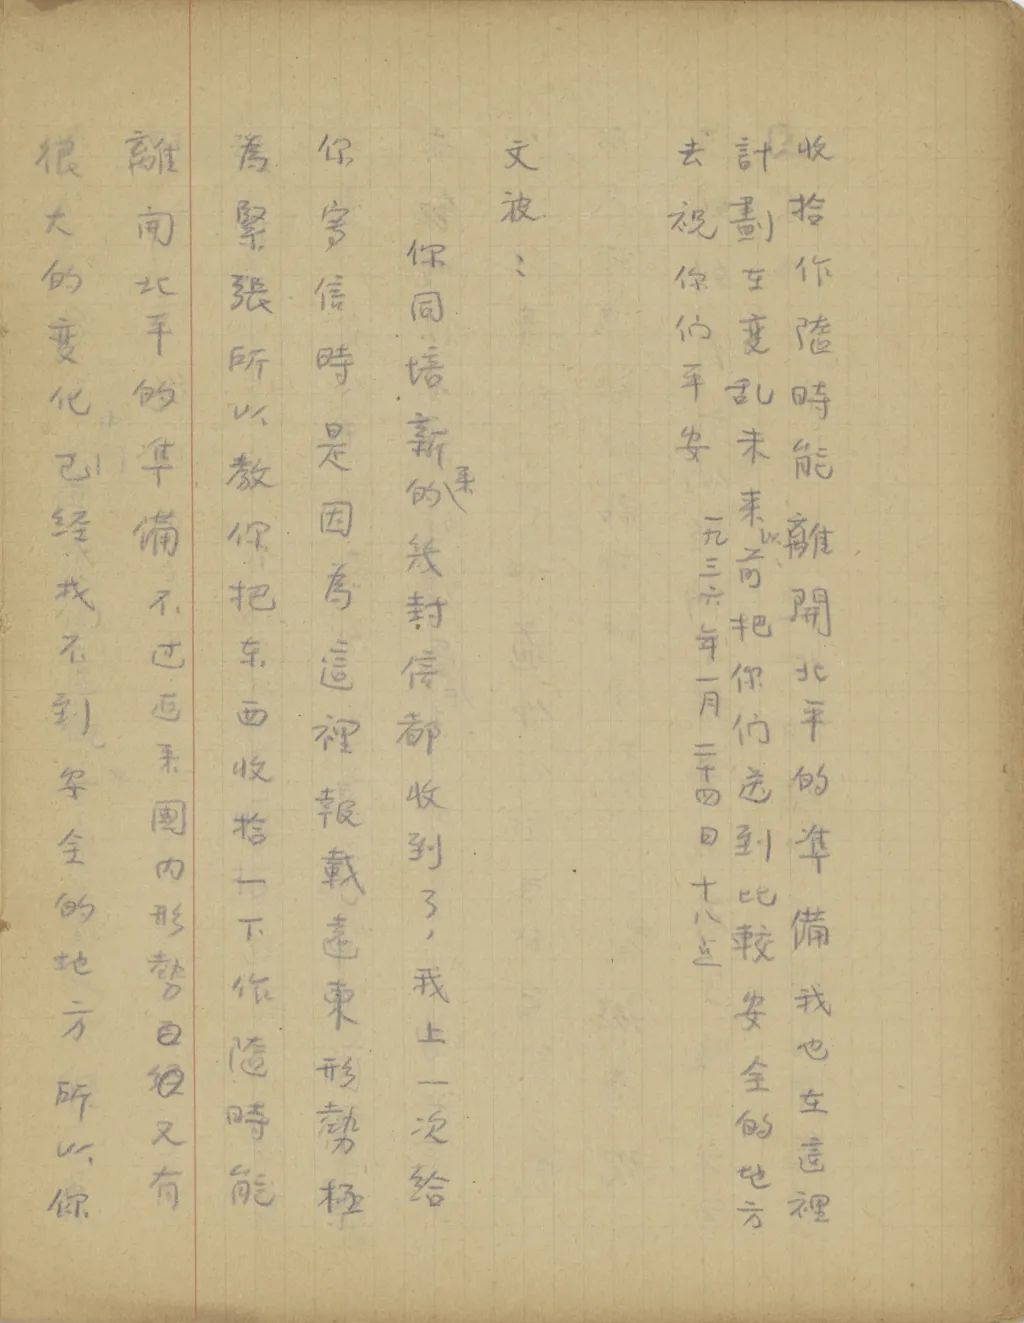 收拾作隨時能離開北平的準備我也在這裡
計劃在变乱未来以前把你们送到比較安全的地方
去祝你们平安
一九三六年一月二十四日十八点
文波：
你同培新的来幾封信都收到了，我上一次給
你寄信時是因為這裡報載遠東形勢極
為緊張所以教你把东西收拾一下作隨時能
離開北平的準備不过近来國内形勢又有
很大的变化已经找不到安全的地方所以你